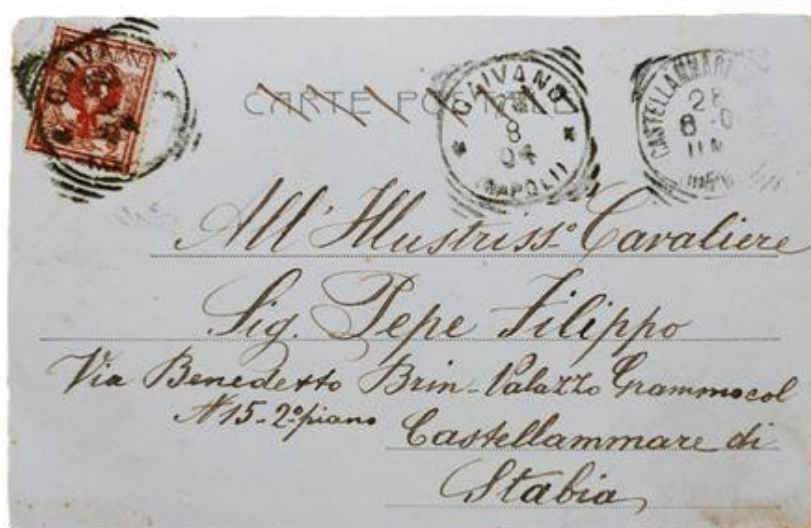 CARTE POSTALE
CAIVANO
CAIVANO
8
04
(NAPOLI)
CASTELLAMMARE
All' Illustriss.º Cavaliere
Sig. Pepe Filippo
Via Benedetto Brin - Palazzo Grammocol
N 15 - 2º piano
Castellammare di
Stabia